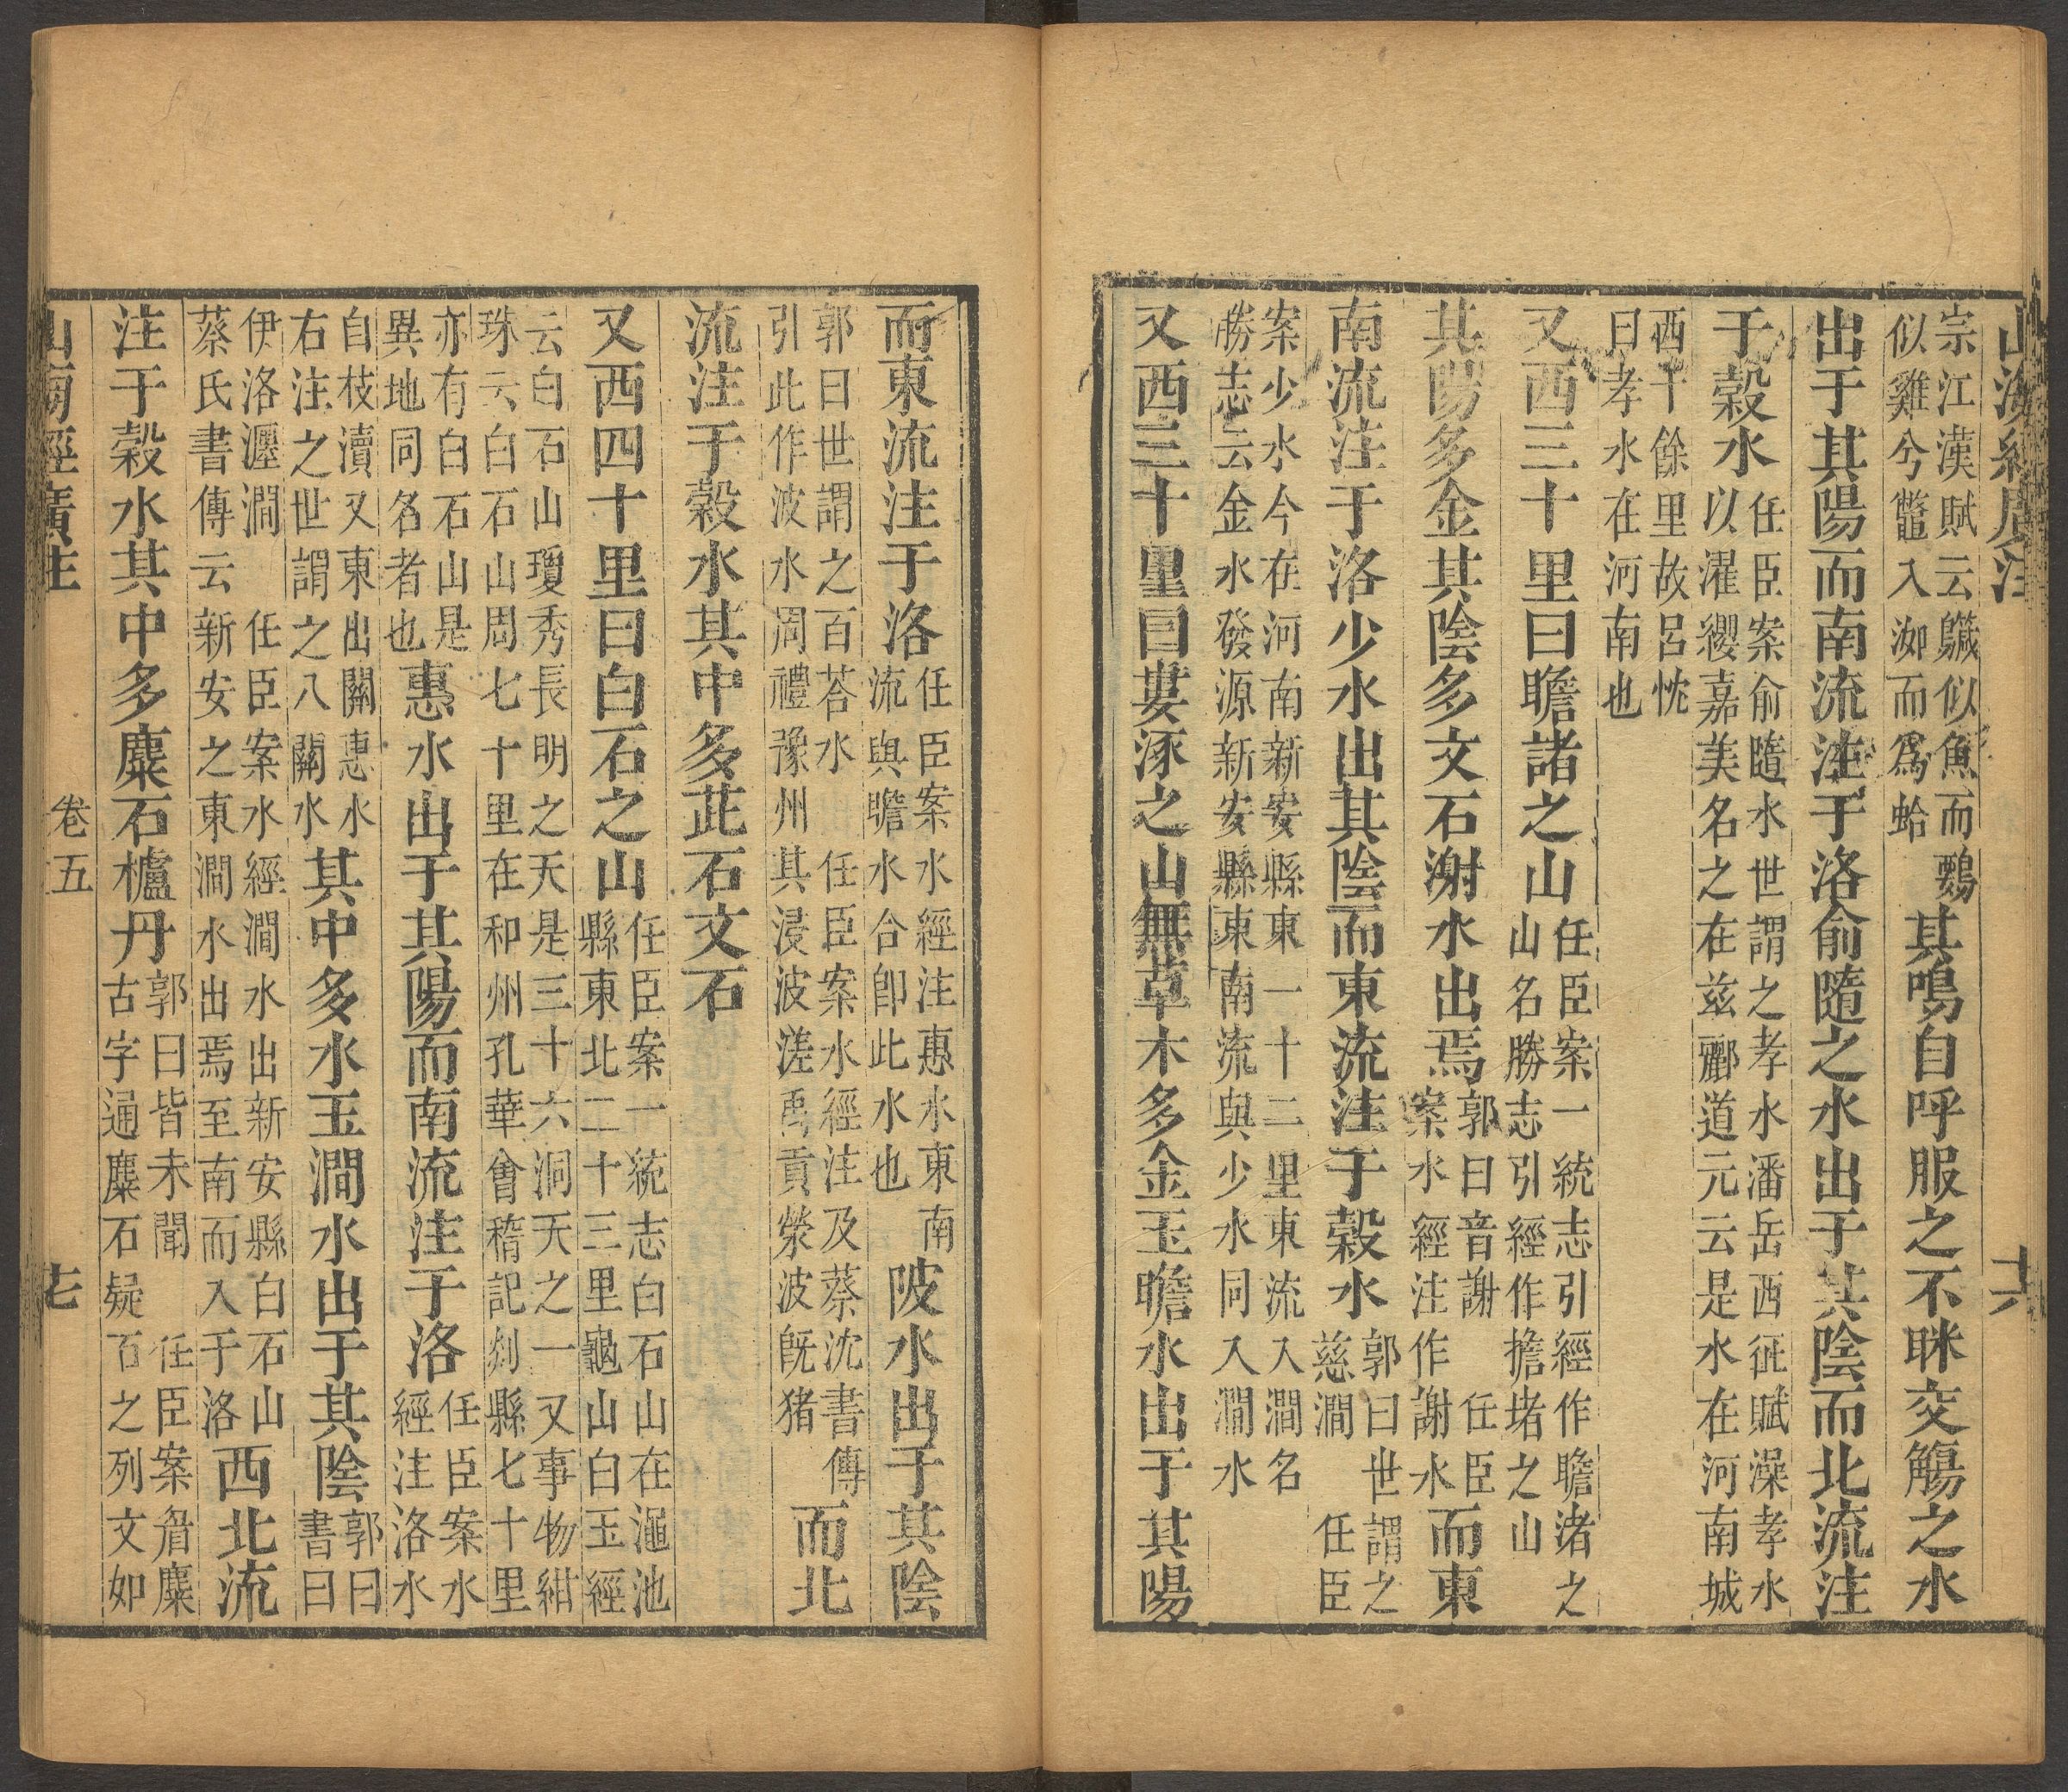 山海經廣注
十六
宗江漢賦云䲃似魚而鷄
似雞兮鼈入泖而爲蛤
其鳴自呼服之不眯交觴之水
出于其陽而南流注于洛俞隨之水出于其陰而北流注
于穀水
任臣案俞隨水世謂之孝水潘岳西征賦澡孝水
以濯纓嘉美名之在兹酈道元云是水在河南城
西十餘里故呂忱
曰孝水在河南也
又西三十里曰瞻諸之山
任臣案一統志引經作瞻渚之
山名勝志引經作擔堵之山
其陽多金其陰多文石㴬水出焉
郭曰音謝 任臣
案水經注作謝水
而東
南流注于洛少水出其陰而東流注于穀水
郭曰世謂之
慈澗 任臣
案少水今在河南新安縣東一十二里東流入澗名
勝志云金水發源新安縣東南流與少水同入澗水
又西三十里曰婁涿之山無草木多金玉瞻水出于其陽
而東流注于洛
任臣案水經注惠水東南
流與瞻水合卽此水也
陂水出于其陰
郭曰世謂之百荅水 任臣案水經注及蔡沈書傳
引此作波水周禮豫州其浸波溠禹貢滎波旣猪
而北
流注于穀水其中多茈石文石
又西四十里曰白石之山
任臣案一統志白石山在澠池
縣東北二十三里龜山白玉經
云白石山瓊秀長明之天是三十六洞天之一又事物紺
珠云白石山周七十里在和州孔華會稽記剡縣七十里
亦有白石山是
異地同名者也
惠水出于其陽而南流注于洛
任臣案水
經注洛水
自枝瀆又東出關惠水
右注之世謂之八關水
其中多水玉澗水出于其陰
郭曰
書曰
伊洛瀍澗 任臣案水經澗水出新安縣白石山
蔡氏書傳云新安之東澗水出焉至南而入于洛
西北流
注于穀水其中多麋石櫨丹
郭曰皆未聞 任臣案眉麋
古字通麋石疑石之列文如
山海經廣注
卷五
十七